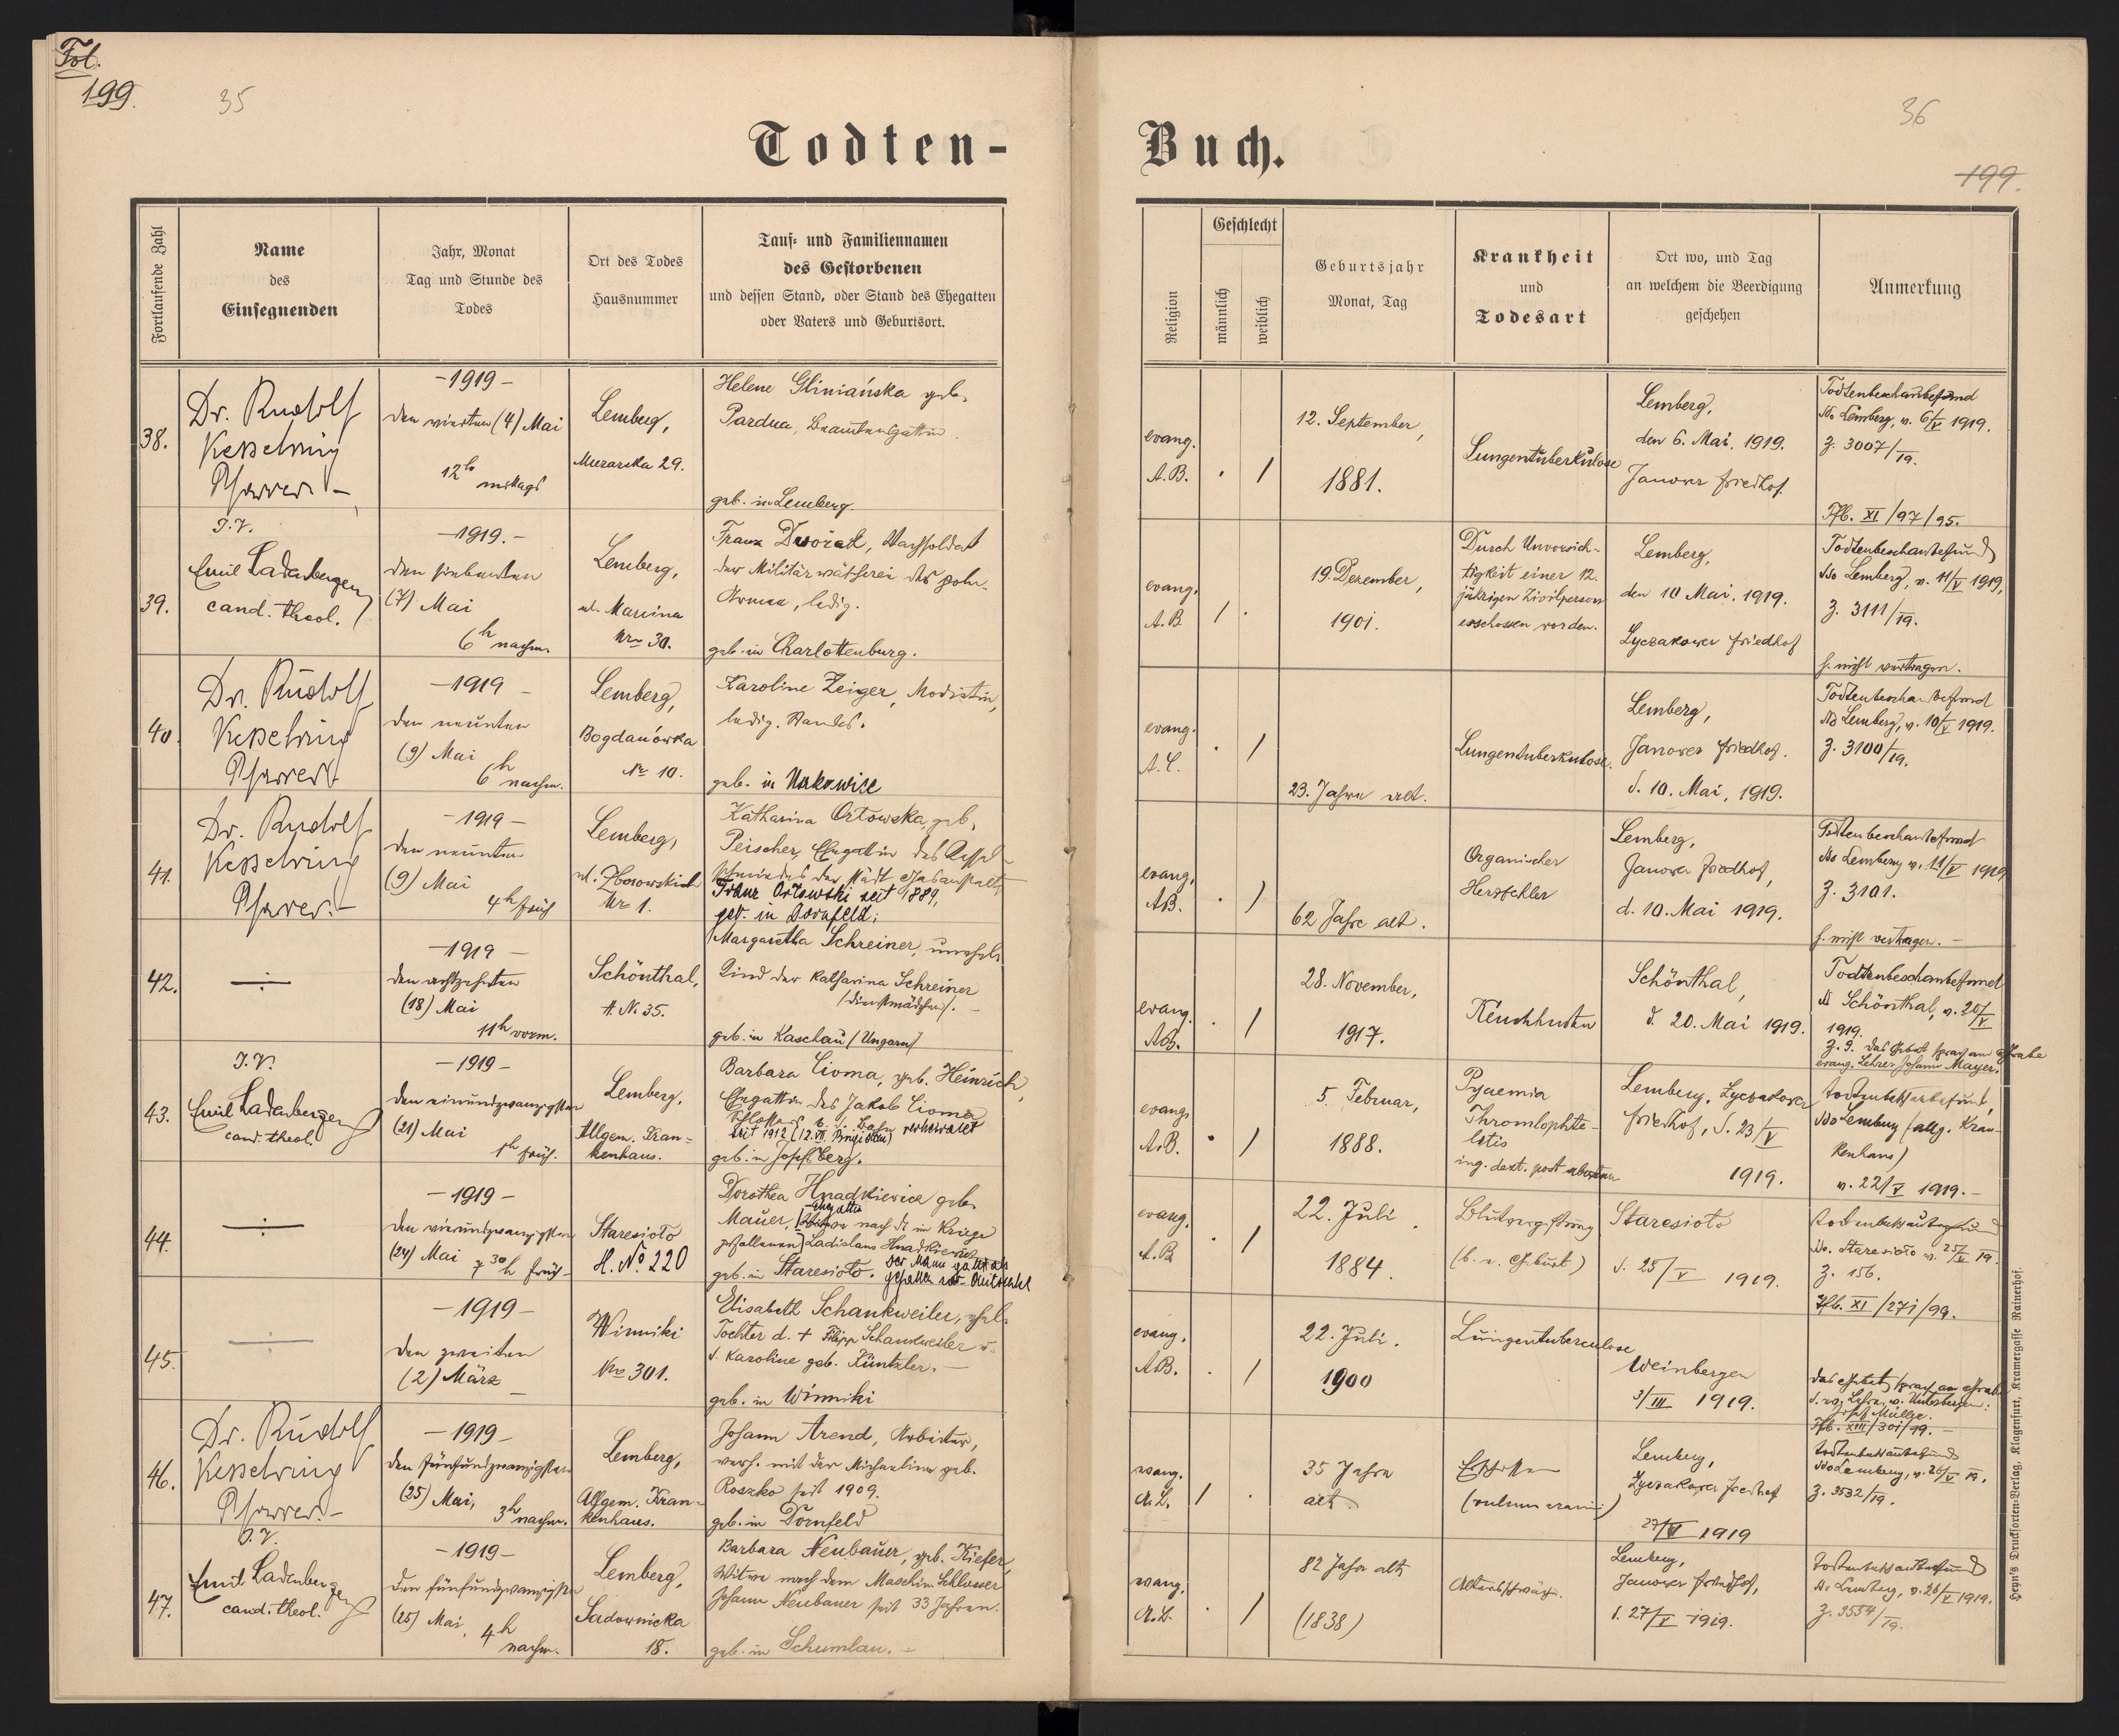 Fol.
199.
35
Todten-
Fortlaufende Zahl
Name
des
Einsegnenden
Jahr, Monat
Tag und Stunde des
Todes
Ort des Todes
Hausnummer
Tauf- und Familiennamen
des Gestorbenen
und dessen Stand, oder Stand des Ehegatten
oder Vaters und Geburtsort.
38.
Dr. Rudolf
Kesselring
Pfarrer
-1919-
den vierten (4) Mai
12h mittags
Lemberg,
Murarska 29.
Helene Gliniańska geb.
Pardua, Beamtensgattin.
geb. in Lemberg.
39.
I.V.
Emil Ladenberger
cand. theol.
-1919.-
den siebenten
(7) Mai
6h nachm.
Lemberg,
ul. Marcina
Nro 30.
Franz Dvořak, Wachsoldat
der Militär der poln.
Armee, ledig.
geb. in Charlottenburg.
40.
Dr. Rudolf
Kesselring
Pfarrer
-1919-
den neunten
(9) Mai
6h nachm.
Lemberg,
Bogdanówka
Nr 10.
Karoline Zeiger, Modistin,
ledig. Standes.
geb. in
41.
Dr. Rudolf
Kesselring
Pfarrer.-
-1919-
den neunten
(9) Mai
4h früh
Lemberg,
ul. Zborowskich
Nr 1.
Katharina Ortowska, geb.
Peischer, Ehegattin des Kessel-
schmiedes der städt. Gasanstalt
Franz Ortowski seit 1889,
geb. in Dornfeld;
42.
-1919-
den achtzehnten
(18) Mai
11h vorm.
Schönthal,
H. N. 35.
Margaretha Schreiner, unehel.
Kind der Katharina Schreiner
/Dienstmädchen/. -
geb. in Kaschau /Ungarn/
43.
I.V.
Emil Ladenberger
cand. theol.
-1919-
den einundzwanzigsten
(21) Mai
1h früh.
Lemberg,
Allgem. Kran-
kenhaus.
Barbara Cioma, geb. Heinrich,
Ehegattin des Jakob Cioma
seit 1912 verheiratet
geb. in Josefsberg.
44.
-1919-
den vierundzwanzigsten
(24) Mai 7 30h früh
Staresioło
H. No 220
Dorothea Hnadkiewicz geb.
Mauer, nach dem im Kriege
gefallenen Ladislaus Hnadkiewicz
geb. in Staresioło.
45.
-1919-
den zweiten
(2) März
Winniki
Nro 301.
Elisabeth Schankweiler, ehel.
Tochter d. + Filipp Schankweiler u.
d. Karoline geb. Küntzler. -
geb. in Winniki
46.
Dr. Rudolf
Kesselring
Pfarrer.-
-1919-
den fünfundzwanzigsten
(25) Mai,
3h nachm.
Lemberg,
Allgem. Kran-
kenhaus.
Johann Arend, Arbeiter,
verh. mit der Michaeline geb.
Roszko seit 1909.
geb. in Dornfeld
47.
I.V.
Emil Ladenberger
cand. theol.
-1919-
den fünfundzwanzigsten
(25) Mai, 4h
nachm.
Lemberg,
Sadownicka
18.
Barbara Neubauer, geb. Kiefer,
Witwe nach dem Maschin. Schlosser
Johann Neubauer seit 33 Jahren.
geb. in Schumlau. -
36
199.
Buch.
Religion
Geschlecht
männlich
weiblich
Geburtsjahr
Monat, Tag
Krankheit
und
Todesart
Ort wo, und Tag
an welchem die Beerdigung
geschehen
Anmerkung
evang.
A.B.
12. September,
1881.
Lungentuberkulose
Lemberg,
den 6. Mai. 1919.
Janower Friedhof.
Todtenbeschaubefund
ddo Lemberg, v. 6/V 1919.
Z. 3007/19.
Pfb. XI/97/95.
evang.
A.B.
19. Dezember,
1901.
Durch Unvorsich-
tigkeit einer 12.
jährigen Zivilperson
erschossen worden.
Lemberg,
den 10 Mai. 1919.
Lyczakower Friedhof
Todtenbeschaubefund
ddo Lemberg, v. 11/V 1919,
Z. 3111/19.
evang.
23. Jahre alt.
Lungentuberkulose.
Lemberg,
Janower Friedhof.
d. 10. Mai, 1919.
Todtenbeschaubefund
ddo Lemberg, v. 10/V 1919.
Z. 3100/19.
evang.
AB.
62 Jahre alt.
Organischer
Herzfehler
Lemberg,
Janower Friedhof,
d. 10. Mai 1919.
Todtenbeschaubefund
ddo Lemberg v. 11/V 1919
Z. 3101.
evang.
AB.
28. November,
1917.
Keuchhusten
Schönthal,
d. 20. Mai 1919.
Todtenbeschaubefund
dd Schönthal, v. 20/V
1919.
Z. 9. das Gebet sprach am Grabe
evang. Lehrer Johann Mayer.
evang.
A.B.
5. Februar,
1888.
Pyaemia
Thromlophle-
betis
ing. dext. post abortum
Lemberg, Lyczakower
Friedhof, d. 23/V
1919.
Todtenbeschaubefund,
ddo Lemberg (allg. Kran-
kenhaus)
v. 22/V 1919.-
evang.
A.B.
22. Juli
1884.
Blutvergiftung
(b. d. Geburt)
Staresioło
d. 25/V 1919.
Todtenbeschaubefund
ddo. Staresioło v. 25/V 19.
Z. 156.
Pfb. XI/271/99.
evang.
AB.
22. Juli.
1900
Lungentuberculose
Weinbergen
3/III 1919.
das Gebet sprach am Grabe
Pfb. XIII/301/99.-
evang.
35 Jahre
alt.
(vulnus cranii)
Lemberg,
Lyczakower Friedhof
27/V 1919
Todtenbeschaubefund
ddo Lemberg, v. 26/V 19.
Z. 3532/19.
evang.
82 Jahre alt
(1838)
Altersschwäche.
Lemberg,
Janower Friedhof,
d. 27/V 1919.
Todtenbeschaubefund
dd. Lemberg, v. 26/V 1919.
Z. 3554/19.
Leyn's Drucksorten-Verlag, Klagenfurt, Kramergasse Rainerhof.